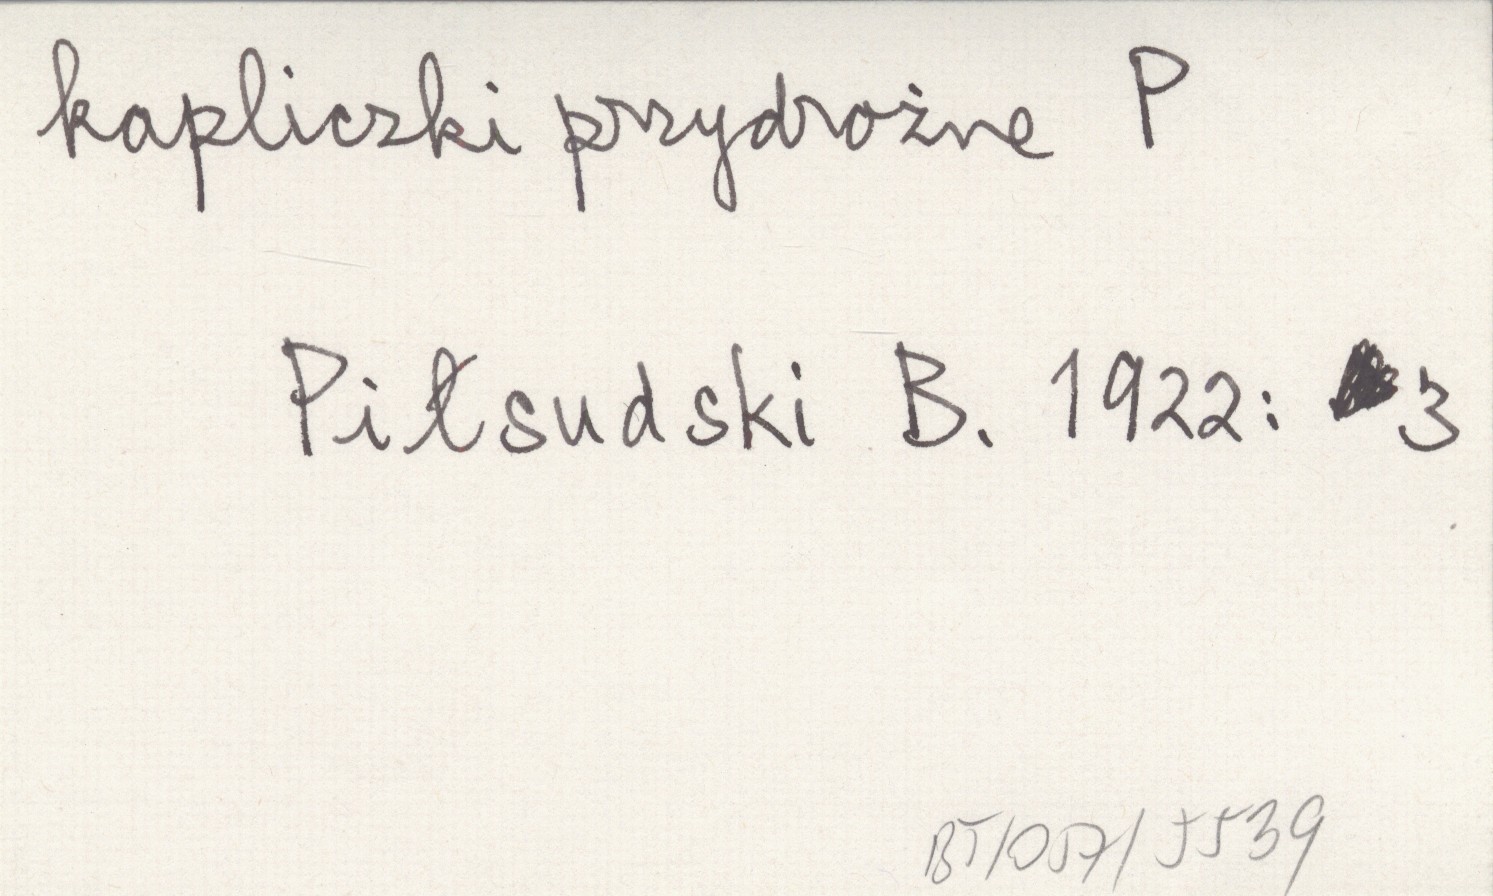 kapliczki przydrożne P
Piłsudski B. 1922: 3
BT/057/5539